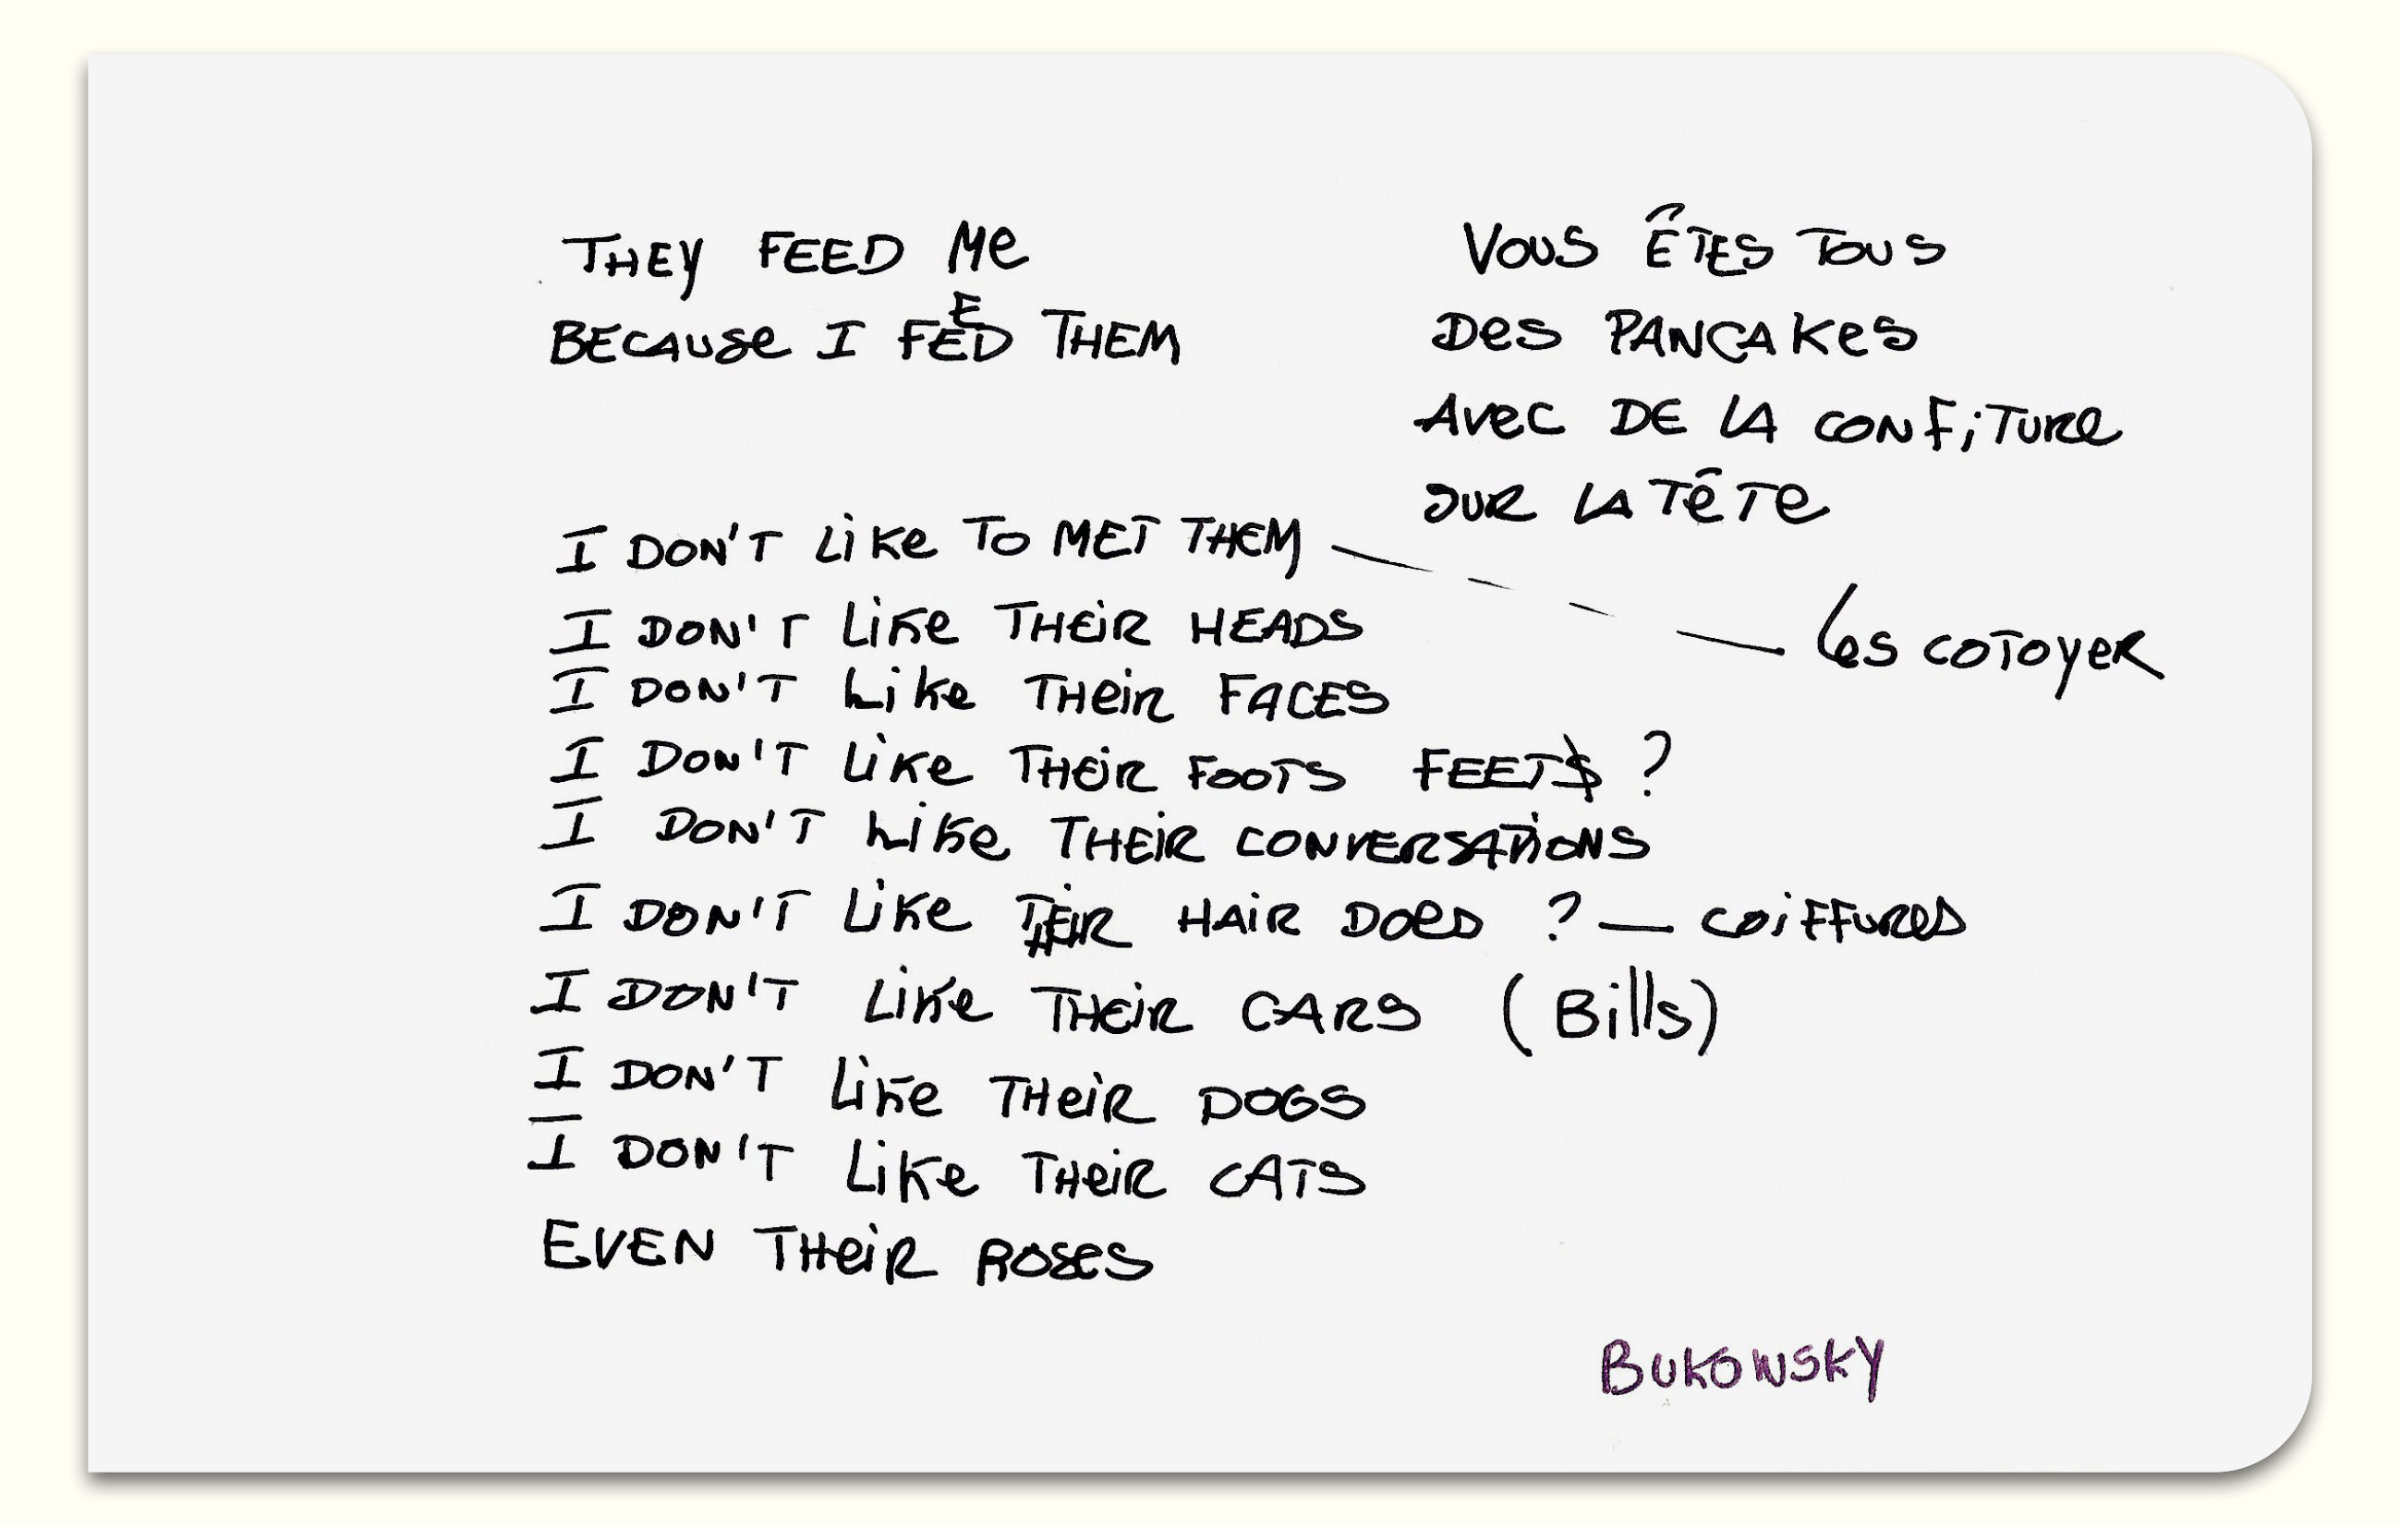 THEY FEED ME
BECAUSE I FEED THEM
VOUS ÊTES TOUS
DES PANCAKES
AVEC DE LA CONFITURE
SUR LA TÊTE
I DON'T LIKE TO MET THEM — LES COTOYER
I DON'T LIKE THEIR HEADS
I DON'T LIKE THEIR FACES
I DON'T LIKE THEIR FOOTS FEETS ?
I DON'T LIKE THEIR CONVERSATIONS
I DON'T LIKE THEIR HAIR DOES ? — COIFFURES
I DON'T LIKE THEIR CARS (Bills)
I DON'T LIKE THEIR DOGS
I DON'T LIKE THEIR CATS
EVEN THEIR ROSES
BUKOWSKY